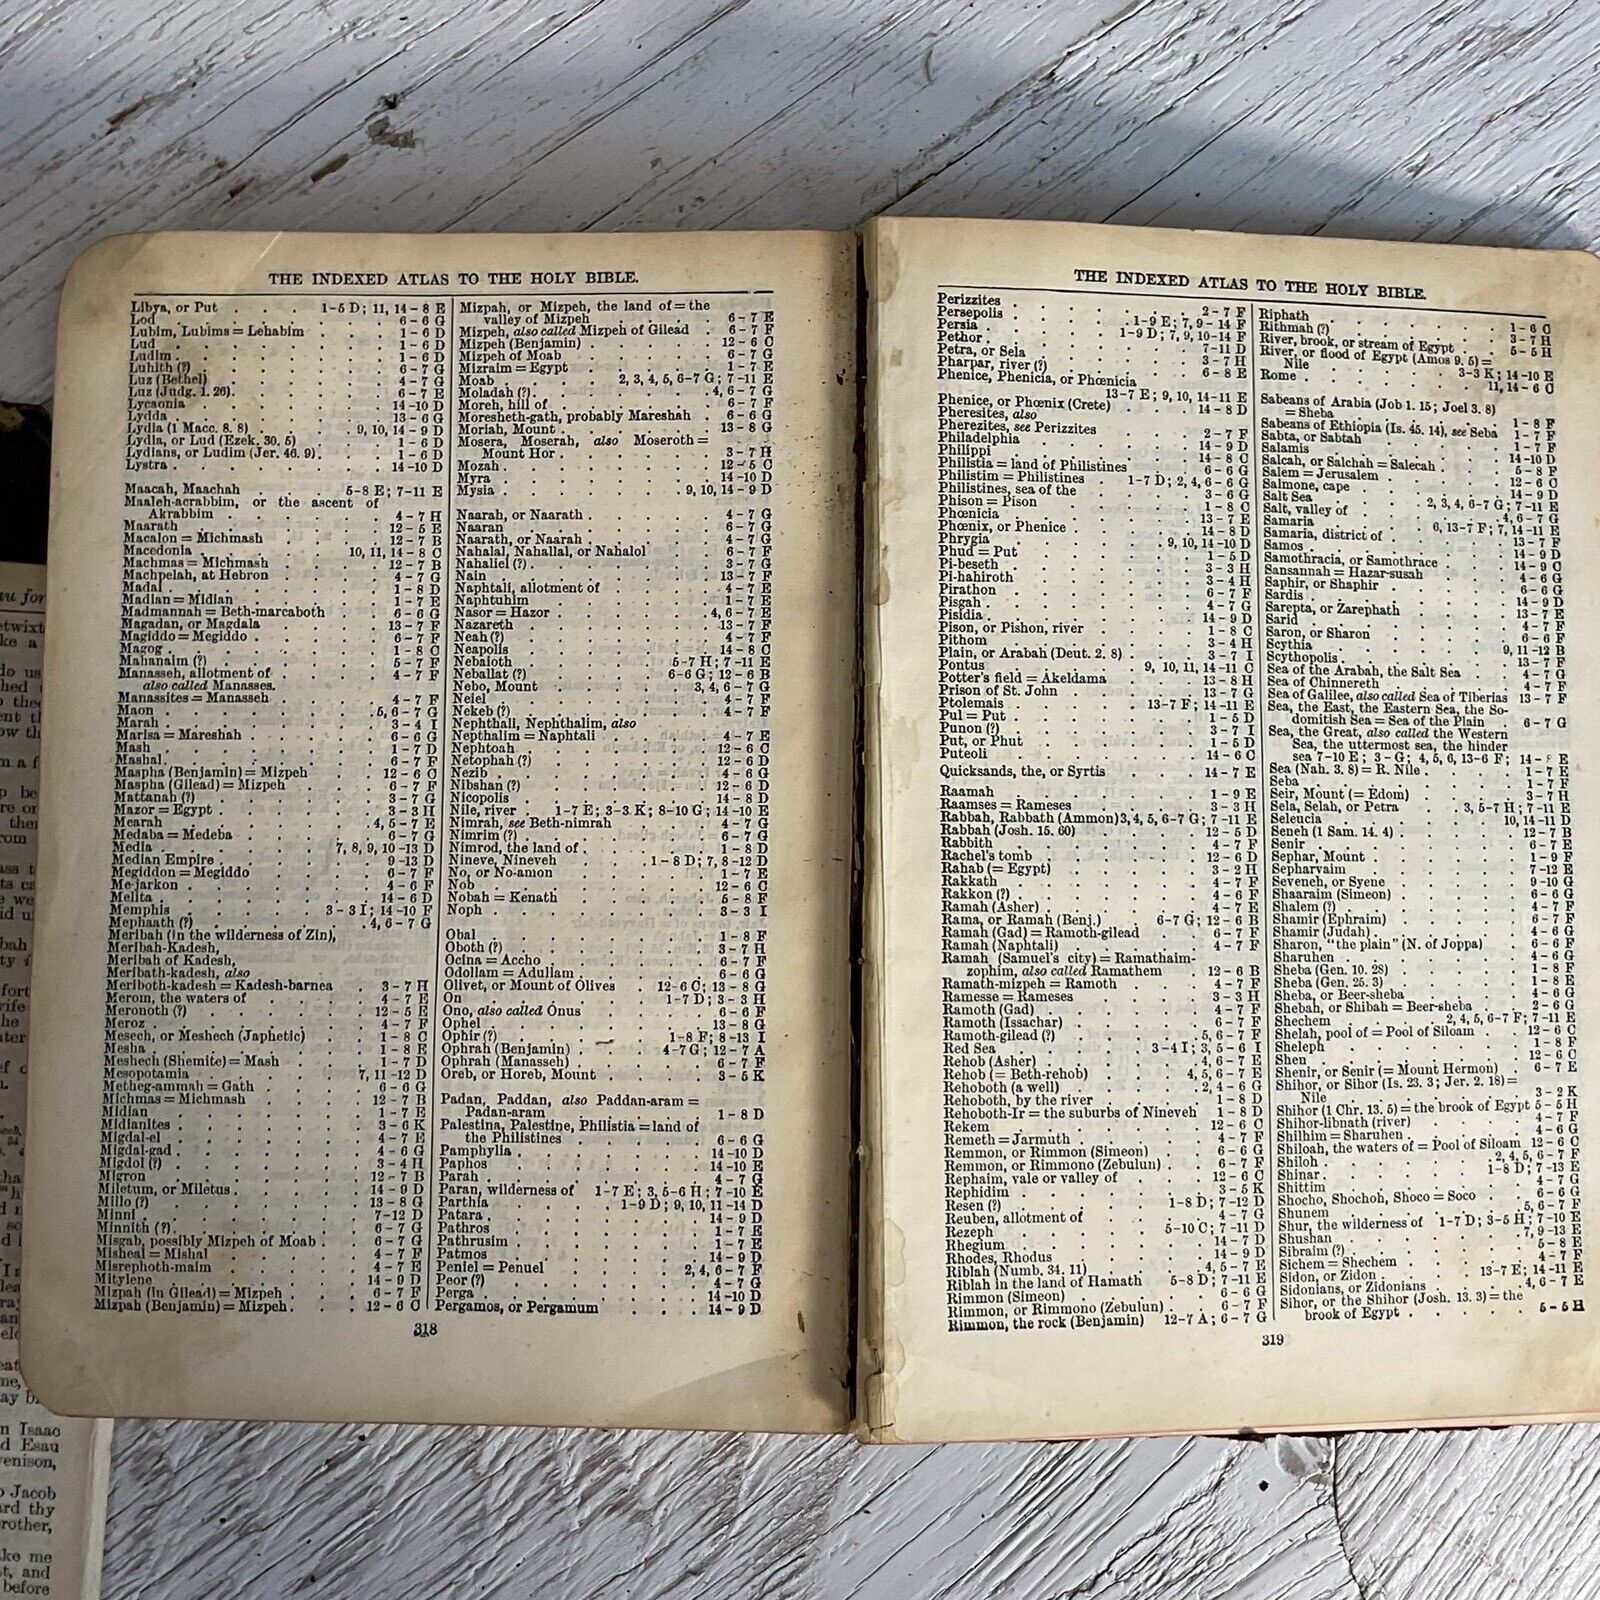 THE INDEXED ATLAS TO THE HOLY BIBLE.
Libya, or Put . . . 1-5 D; 11, 14-8 E
Lod . . . 6-6 G
Lubim, Lubims = Lehabim . . . 1-6 D
Lud . . . 1-6 D
Ludim . . . 1-6 D
Luhith (?) . . . 6-7 G
Luz (Bethel) . . . 4-7 G
Luz (Judg. 1. 26) . . . 6-7 E
Lycaonia . . . 14-10 D
Lydda . . . 13-6 G
Lydia (1 Macc. 8. 8) . . . 9, 10, 14-9 D
Lydia, or Lud (Ezek. 30. 5) . . . 1-6 D
Lydians, or Ludim (Jer. 46. 9) . . . 1-6 D
Lystra . . . 14-10 D
Maacah, Maachah . . . 5-8 E; 7-11 E
Maaleh-acrabbim, or the ascent of
Akrabbim . . . 4-7 H
Maarath . . . 12-5 E
Macalon = Michmash . . . 12-7 B
Macedonia . . . 10, 11, 14-8 C
Machmas = Michmash . . . 12-7 B
Machpelah, at Hebron . . . 4-7 G
Madai . . . 1-8 D
Madian = Midian . . . 1-7 E
Madmannah = Beth-marcaboth . . . 6-6 G
Magadan, or Magdala . . . 13-7 F
Magiddo = Megiddo . . . 6-7 F
Magog . . . 1-8 C
Mahanaim (?) . . . 5-7 F
Manasseh, allotment of . . . 4-7 F
also called Manasses.
Manassites = Manasseh . . . 4-7 F
Maon . . . 5, 6-7 G
Marah . . . 3-4 I
Marisa = Mareshah . . . 6-6 G
Mash . . . 1-7 D
Mashal . . . 6-7 F
Maspha (Benjamin) = Mizpeh . . . 12-6 C
Maspha (Gilead) = Mizpeh . . . 6-7 F
Mattanah (?) . . . 3-7 G
Mazor = Egypt . . . 3-3 H
Mearah . . . 4, 5-7 E
Medaba = Medeba . . . 6-7 G
Media . . . 7, 8, 9, 10-13 D
Median Empire . . . 9-13 D
Megiddon = Megiddo . . . 6-7 F
Me-jarkon . . . 4-6 F
Melita . . . 14-6 D
Memphis . . . 3-3 I; 14-10 F
Mephaath (?) . . . 4, 6-7 G
Meribah (in the wilderness of Zin),
Meribah-Kadesh,
Meribah of Kadesh,
Meribath-kadesh, also
Meriboth-kadesh = Kadesh-barnea . 3-7 H
Merom, the waters of . . . 4-7 E
Meronoth (?) . . . 12-5 E
Meroz . . . 4-7 F
Mesech, or Meshech (Japhetic) . . . 1-8 C
Mesha . . . 1-8 E
Meshech (Shemite) = Mash . . . 1-7 D
Mesopotamia . . . 7, 11-12 D
Metheg-ammah = Gath . . . 6-6 G
Michmas = Michmash . . . 12-7 B
Midian . . . 1-7 E
Midianites . . . 3-6 K
Migdal-el . . . 4-7 E
Migdal-gad . . . 4-6 G
Migdol (?) . . . 3-4 H
Migron . . . 12-7 B
Miletum, or Miletus . . . 14-9 D
Millo (?) . . . 13-8 G
Minni . . . 7-12 D
Minnith (?) . . . 6-7 G
Misgab, possibly Mizpeh of Moab . . . 6-7 G
Misheal = Mishal . . . 4-7 F
Misrephoth-maim . . . 4-7 E
Mitylene . . . 14-9 D
Mizpah (in Gilead) = Mizpeh . . . 6-7 F
Mizpah (Benjamin) = Mizpeh . . . 12-6 C
Mizpah, or Mizpeh, the land of = the
valley of Mizpeh . . . 6-7 E
Mizpeh, also called Mizpeh of Gilead . 6-7 F
Mizpeh (Benjamin) . . . 12-6 C
Mizpeh of Moab . . . 6-7 G
Mizraim = Egypt . . . 1-7 E
Moab . . . 2, 3, 4, 5, 6-7 G; 7-11 E
Moladah (?) . . . 4, 6-7 G
Moreh, hill of . . . 6-7 F
Moresheth-gath, probably Mareshah . 6-6 G
Moriah, Mount . . . 13-8 G
Mosera, Moserah, also Moseroth =
Mount Hor . . . 3-7 H
Mozah . . . 12-5 C
Myra . . . 14-10 D
Mysia . . . 9, 10, 14-9 D
Naarah, or Naarath . . . 4-7 G
Naaran . . . 6-7 G
Naarath, or Naarah . . . 4-7 G
Nahalal, Nahallal, or Nahalol . . . 6-7 F
Nahaliel (?) . . . 3-7 G
Nain . . . 13-7 F
Naphtali, allotment of . . . 4-7 E
Naphtuhim . . . 1-7 E
Nasor = Hazor . . . 4, 6-7 E
Nazareth . . . 13-7 F
Neah (?) . . . 4-7 F
Neapolis . . . 14-8 C
Nebaioth . . . 5-7 H; 7-11 E
Neballat (?) . . . 6-6 G; 12-6 B
Nebo, Mount . . . 3, 4, 6-7 G
Neiel . . . 4-7 F
Nekeb (?) . . . 4-7 F
Nephthali, Nephthalim, also
Nepthalim = Naphtali . . . 4-7 E
Nephtoah . . . 12-6 C
Netophah (?) . . . 12-6 D
Nezib . . . 4-6 G
Nibshan (?) . . . 12-6 D
Nicopolis . . . 14-8 D
Nile, river . 1-7 E; 3-3 K; 8-10 G; 14-10 E
Nimrah, see Beth-nimrah . . . 4-7 G
Nimrim (?) . . . 6-7 G
Nimrod, the land of . . . 1-8 D
Nineve, Nineveh . . . 1-8 D; 7, 8-12 D
No, or No-amon . . . 1-7 E
Nob . . . 12-6 C
Nobah = Kenath . . . 5-8 F
Noph . . . 3-3 I
Obal . . . 1-8 F
Oboth (?) . . . 3-7 H
Ocina = Accho . . . 6-7 F
Odollam = Adullam . . . 6-6 G
Olivet, or Mount of Olives . 12-6 C; 13-8 G
On . . . 1-7 D; 3-3 H
Ono, also called Onus . . . 6-6 F
Ophel . . . 13-8 G
Ophir (?) . . . 1-8 F; 8-13 I
Ophrah (Benjamin) . . . 4-7 G; 12-7 A
Ophrah (Manasseh) . . . 6-7 F
Oreb, or Horeb, Mount . . . 3-5 K
Padan, Paddan, also Paddan-aram =
Padan-aram . . . 1-8 D
Palestina, Palestine, Philistia = land of
the Philistines . . . 6-6 G
Pamphylia . . . 14-10 D
Paphos . . . 14-10 E
Parah . . . 4-7 G
Paran, wilderness of 1-7 E; 3, 5-6 H; 7-10 E
Parthia . . . 1-9 D; 9, 10, 11-14 D
Patara . . . 14-9 D
Pathros . . . 1-7 E
Pathrusim . . . 1-7 E
Patmos . . . 14-9 D
Peniel = Penuel . . . 2, 4, 6-7 F
Peor (?) . . . 4-7 G
Perga . . . 14-10 D
Pergamos, or Pergamum . . . 14-9 D
318
THE INDEXED ATLAS TO THE HOLY BIBLE.
Perizzites . . . 2-7 F
Persepolis
Persia . . . 1-9 E; 7, 9-14 F
Pethor . . . 1-9 D; 7, 9, 10-14 F
Petra, or Sela . . . 7-11 D
Pharpar, river (?) . . . 3-7 H
Phenice, Phenicia, or Phœnicia . . . 6-8 E
13-7 E; 9, 10, 14-11 E
Phenice, or Phœnix (Crete) . . . 14-8 D
Pheresites, also
Pherezites, see Perizzites . . . 2-7 F
Philadelphia . . . 14-9 D
Philippi . . . 14-8 C
Philistia = land of Philistines . . . 6-6 G
Philistim = Philistines . 1-7 D; 2, 4, 6-6 G
Philistines, sea of the . . . 3-6 G
Phison = Pison . . . 1-8 C
Phœnicia . . . 13-7 E
Phœnix, or Phenice . . . 14-8 D
Phrygia . . . 9, 10, 14-10 D
Phud = Put . . . 1-5 D
Pi-beseth . . . 3-3 H
Pi-hahiroth . . . 3-4 H
Pirathon . . . 6-7 F
Pisgah . . . 4-7 G
Pisidia . . . 14-9 D
Pison, or Pishon, river . . . 1-8 C
Pithom . . . 3-4 H
Plain, or Arabah (Deut. 2. 8) . . . 3-7 I
Pontus . . . 9, 10, 11, 14-11 C
Potter's field = Akeldama . . . 13-8 H
Prison of St. John . . . 13-7 G
Ptolemais . . . 13-7 F; 14-11 E
Pul = Put . . . 1-5 D
Punon (?) . . . 3-7 I
Put, or Phut . . . 1-5 D
Puteoli . . . 14-6 C
Quicksands, the, or Syrtis . . . 14-7 E
Raamah . . . 1-9 E
Raamses = Rameses . . . 3-3 H
Rabbah, Rabbath (Ammon) 3, 4, 5, 6-7 G; 7-11 E
Rabbah (Josh. 15. 60) . . . 12-5 D
Rabbith . . . 4-7 F
Rachel's tomb . . . 12-6 D
Rahab (= Egypt) . . . 3-2 H
Rakkath . . . 4-7 F
Rakkon (?) . . . 4-6 F
Ramah (Asher) . . . 4-7 E
Rama, or Ramah (Benj.) . 6-7 G; 12-6 B
Ramah (Gad) = Ramoth-gilead . . . 6-7 F
Ramah (Naphtali) . . . 4-7 F
Ramah (Samuel's city) = Ramathaim-
zophim, also called Ramathem . 12-6 B
Ramath-mizpeh = Ramoth . . . 4-7 F
Ramesse = Rameses . . . 3-3 H
Ramoth (Gad) . . . 4-7 F
Ramoth (Issachar) . . . 6-7 F
Ramoth-gilead (?) . . . 5, 6-7 F
Red Sea . . . 3-4 I; 3, 5-6 I
Rehob (Asher) . . . 4, 6-7 E
Rehob (= Beth-rehob) . . . 4, 5, 6-7 E
Rehoboth (a well) . . . 2, 4-6 G
Rehoboth, by the river . . . 1-8 D
Rehoboth-Ir = the suburbs of Nineveh 1-8 D
Rekem . . . 12-6 C
Remeth = Jarmuth . . . 4-7 F
Remmon, or Rimmon (Simeon) . . . 6-6 G
Remmon, or Rimmono (Zebulun) . . . 6-7 F
Rephaim, vale or valley of . . . 12-6 C
Rephidim . . . 3-5 K
Resen (?) . . . 1-8 D; 7-12 D
Reuben, allotment of . . . 4-7 G
Rezeph . . . 5-10 C; 7-11 D
Rhegium . . . 14-7 D
Rhodes, Rhodus . . . 14-9 D
Riblah (Numb. 34. 11) . . . 4, 5-7 E
Riblah in the land of Hamath 5-8 D; 7-11 E
Rimmon (Simeon) . . . 6-6 G
Rimmon, or Rimmono (Zebulun) . . . 6-7 F
Rimmon, the rock (Benjamin) 12-7 A; 6-7 G
Riphath . . . 1-6 C
Rithmah (?) . . . 3-7 H
River, brook, or stream of Egypt . . . 5-5 H
River, or flood of Egypt (Amos 9. 5) =
Nile . . . 3-3 K; 14-10 E
Rome . . . 11, 14-6 C
Sabeans of Arabia (Job 1. 15; Joel 3. 8)
= Sheba . . . 1-8 F
Sabeans of Ethiopia (Is. 45. 14), see Seba 1-7 F
Sabta, or Sabtah . . . 1-7 F
Salamis . . . 14-10 D
Salcah, or Salchah = Salecah . . . 5-8 F
Salem = Jerusalem . . . 12-6 C
Salmone, cape . . . 14-9 D
Salt Sea . . . 2, 3, 4, 6-7 G; 7-11 E
Salt, valley of . . . 4, 6-7 G
Samaria . . . 6, 13-7 F; 7, 14-11 E
Samaria, district of . . . 13-7 F
Samos . . . 14-9 D
Samothracia, or Samothrace . . . 14-9 C
Sansannah = Hazar-susah . . . 4-6 G
Saphir, or Shaphir . . . 6-6 G
Sardis . . . 14-9 D
Sarepta, or Zarephath . . . 13-7 E
Sarid . . . 4-7 F
Saron, or Sharon . . . 6-6 F
Scythia . . . 9, 11-12 B
Scythopolis . . . 13-7 F
Sea of the Arabah, the Salt Sea . . . 4-7 G
Sea of Chinnereth . . . 4-7 F
Sea of Galilee, also called Sea of Tiberias 13-7 F
Sea, the East, the Eastern Sea, the So-
domitish Sea = Sea of the Plain . 6-7 G
Sea, the Great, also called the Western
Sea, the uttermost sea, the hinder
sea 7-10 E; 3-G; 4, 5, 6, 13-6 F; 14-8 E
Sea (Nah. 3. 8) = R. Nile . . . 1-7 E
Seba . . . 1-7 F
Seir, Mount (= Edom) . . . 3-7 H
Sela, Selah, or Petra . . . 3, 5-7 H; 7-11 E
Seleucia . . . 10, 14-11 D
Seneh (1 Sam. 14. 4) . . . 12-7 B
Senir . . . 6-7 E
Sephar, Mount . . . 1-9 F
Sepharvaim . . . 7-12 E
Seveneh, or Syene . . . 9-10 G
Shaaraim (Simeon) . . . 6-6 G
Shalem (?) . . . 4-7 F
Shamir (Ephraim) . . . 6-7 F
Shamir (Judah) . . . 4-6 G
Sharon, "the plain" (N. of Joppa) . . . 6-6 F
Sharuhen . . . 4-6 G
Sheba (Gen. 10. 28) . . . 1-8 F
Sheba (Gen. 25. 3) . . . 1-8 E
Sheba, or Beer-sheba . . . 4-6 G
Shebah, or Shibah = Beer-sheba . . . 2-6 G
Shechem . . . 2, 4, 5, 6-7 F; 7-11 E
Shelah, pool of = Pool of Siloam . . . 12-6 C
Sheleph . . . 1-8 F
Shen . . . 12-6 C
Shenir, or Senir (= Mount Hermon) . 6-7 E
Shihor, or Sihor (Is. 23. 3; Jer. 2. 18) =
Nile . . . 3-2 K
Shihor (1 Chr. 13. 5) = the brook of Egypt 5-5 H
Shihor-libnath (river) . . . 4-7 F
Shilhim = Sharuhen . . . 4-6 G
Shiloah, the waters of = Pool of Siloam 12-6 C
Shiloh . . . 2, 4, 5, 6-7 F
Shinar . . . 1-8 D; 7-13 E
Shittim . . . 4-7 G
Shocho, Shochoh, Shoco = Soco . . . 6-6 G
Shunem . . . 5, 6-7 F
Shur, the wilderness of 1-7 D; 3-5 H; 7-10 E
Shushan . . . 7, 9-13 E
Sibraim (?) . . . 5-8 E
Sichem = Shechem . . . 4-7 F
Sidon, or Zidon . . . 13-7 E; 14-11 E
Sidonians, or Zidonians . . . 4, 6-7 E
Sihor, or the Shihor (Josh. 13. 3) = the
brook of Egypt . . . 5-5 H
319
n Isaac
d Esau
venison,
Jacob
ard thy
rother,
ke me
t, and
before